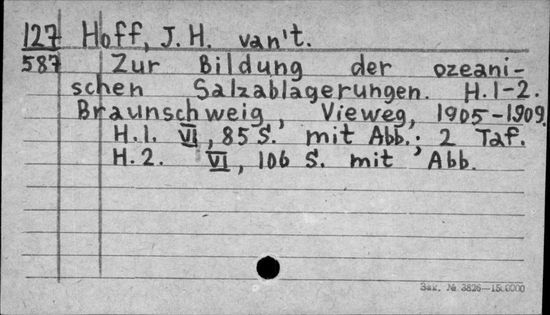 127 Hoff, J. H. van't.
587 Zur Bildung der ozeani-
schen Salzablagerungen. H.1-2.
Braunschweig, Vieweg, 1905-1909.
H.1. VI, 85 S. mit Abb.; 2 Taf.
H.2. VI, 106 S. mit Abb.
Зак. № 3826—150000